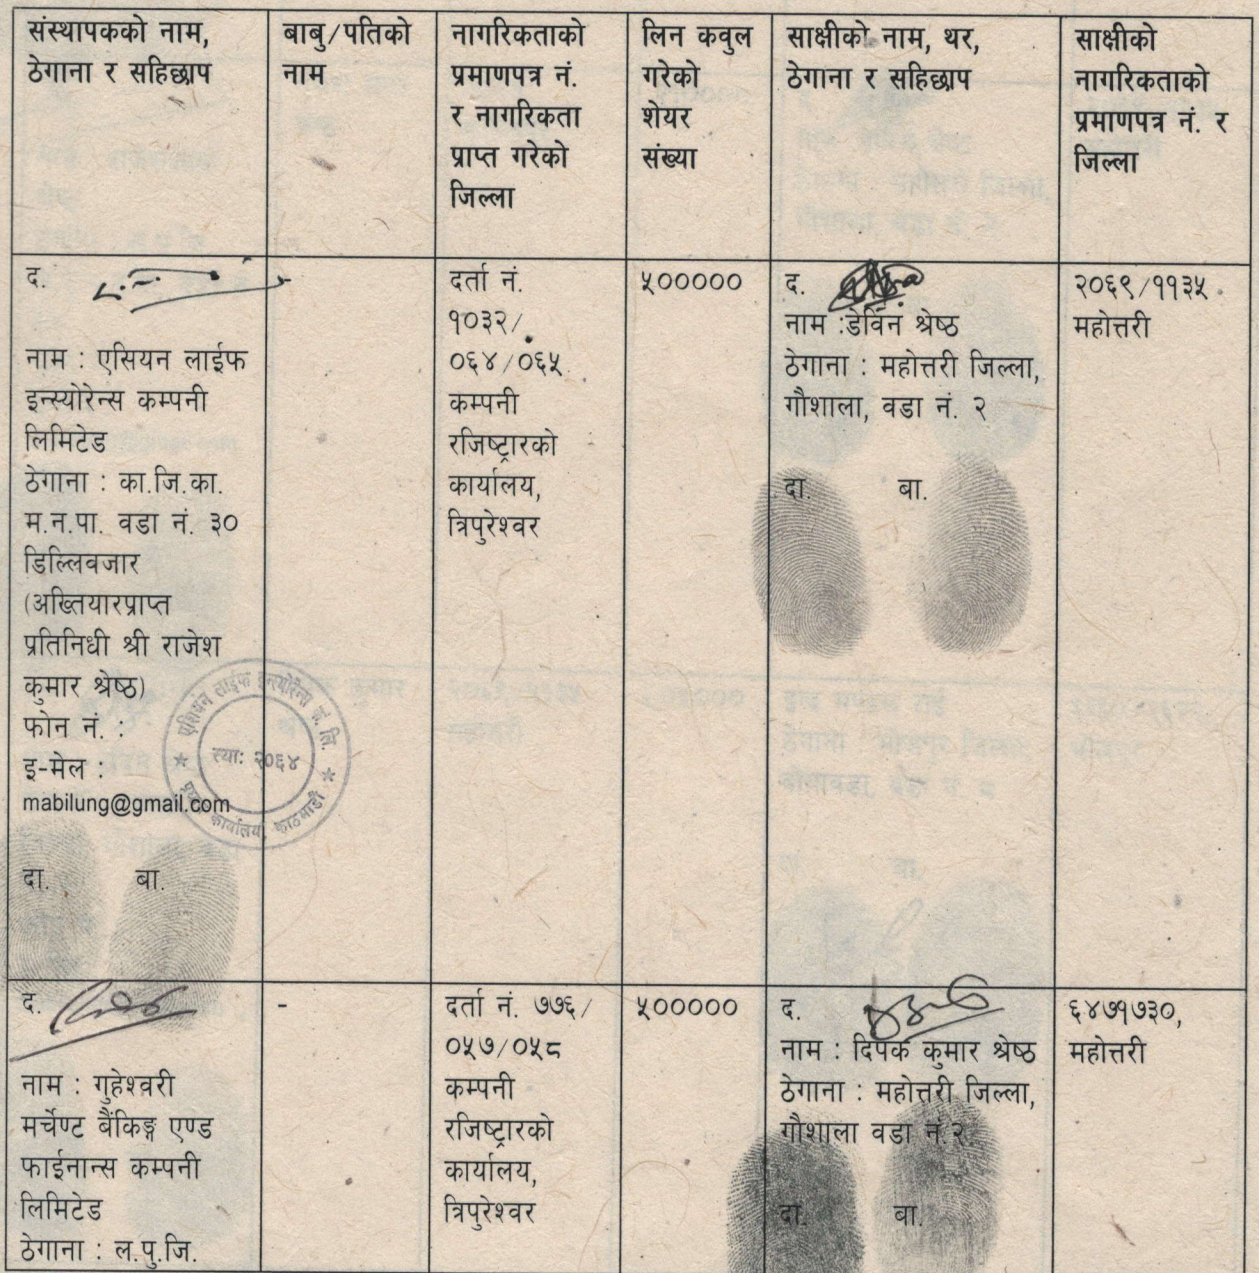 संस्थापकको नाम,
ठेगाना र सहिछाप
बाबु/पतिको
नाम
नागरिकताको
प्रमाणपत्र नं.
र नागरिकता
प्राप्त गरेको
जिल्ला
लिन कवुल
गरेको
शेयर
संख्या
साक्षीको नाम, थर,
ठेगाना र सहिछाप
साक्षीको
नागरिकताको
प्रमाणपत्र नं. र
जिल्ला
द.
नाम : एसियन लाईफ
इन्स्योरेन्स कम्पनी
लिमिटेड
ठेगाना : का.जि.का.
म.न.पा. वडा नं. ३०
डिल्लिवजार
(अख्तियारप्राप्त
प्रतिनिधी श्री राजेश
कुमार श्रेष्ठ)
फोन नं. :
इ-मेल :
mabilung@gmail.com
दा. बा.
एशियन लाईफ इन्स्योरेन्स कं. लि.
स्था: २०६४
कार्यालय, काठमाडौं
दर्ता नं.
१०३२/
०६४/०६५
कम्पनी
रजिष्ट्रारको
कार्यालय,
त्रिपुरेश्वर
५०००००
द.
नाम :डेविन श्रेष्ठ
ठेगाना : महोत्तरी जिल्ला,
गौशाला, वडा नं. २
दा. बा.
२०६९/११३५
महोत्तरी
द.
नाम : गुहेश्वरी
मर्चेण्ट बैंकिङ्ग एण्ड
फाईनान्स कम्पनी
लिमिटेड
ठेगाना : ल.पु.जि.
-
दर्ता नं. ७७६/
०५७/०५८
कम्पनी
रजिष्ट्रारको
कार्यालय,
त्रिपुरेश्वर
५०००००
द.
नाम : दिपक कुमार श्रेष्ठ
ठेगाना : महोत्तरी जिल्ला,
गौशाला वडा नं.२
दा. बा.
६४७१७३०,
महोत्तरी